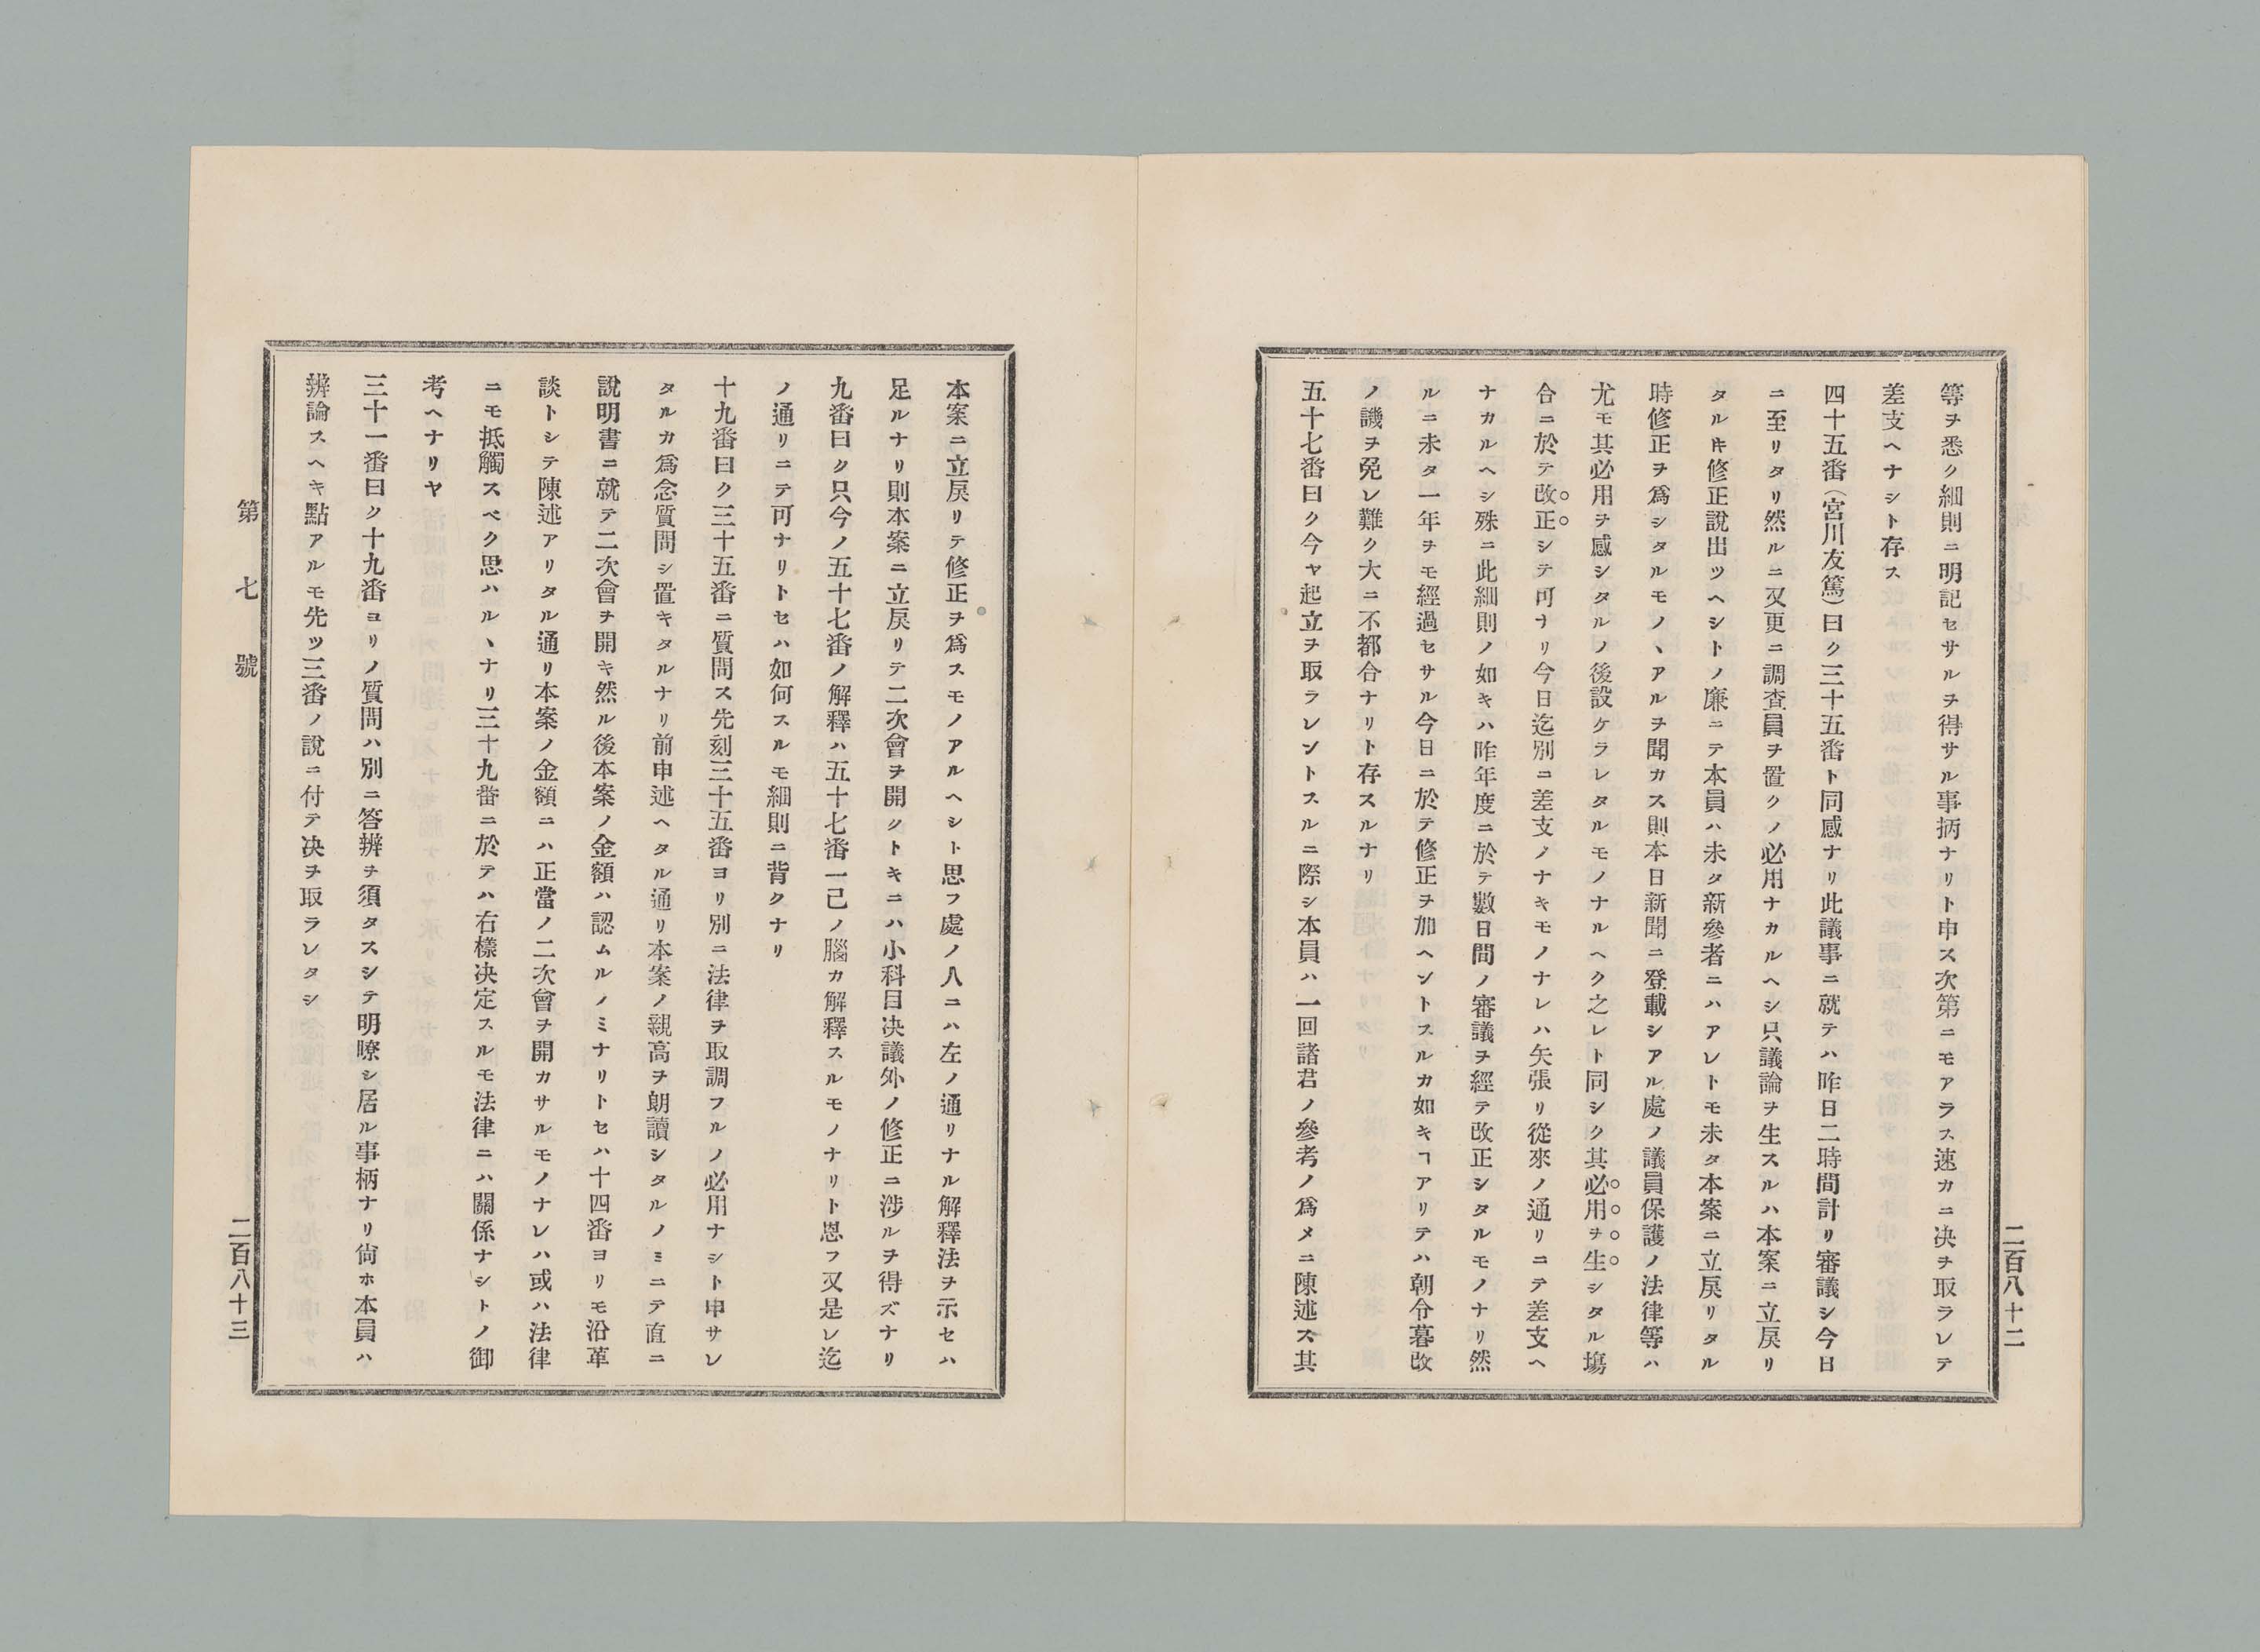 等ヲ悉ク細則ニ明記セサルヲ得サル事柄ナリト申ス次第ニモアラス速カニ决ヲ取ラレテ
差支ヘナシト存ス
四十五番(宮川友篤)曰ク三十五番ト同感ナリ此議事ニ就テハ昨日二時間計リ審議シ今日
ニ至リタリ然ルニ又更ニ調査員ヲ置クノ必用ナカルヘシ只議論ヲ生スルハ本案ニ立戾リ
タルキ修正說出ツヘシトノ廉ニテ本員ハ未タ新參者ニハアレトモ未タ本案ニ立戾リタル
時修正ヲ爲シタルモノヽアルヲ聞カス則本日新聞ニ登載シアル處ノ議員保護ノ法律等ハ
尤モ其必用ヲ感シタルノ後設ケラレタルモノナルヘク之レト同シク其必用ヲ生シタル塲
合ニ於テ改正シテ可ナリ今日迄別ニ差支ノナキモノナレハ矢張リ從來ノ通リニテ差支ヘ
ナカルヘシ殊ニ此細則ノ如キハ昨年度ニ於テ數日間ノ審議ヲ經テ改正シタルモノナリ然
ルニ未タ一年ヲモ經過セサル今日ニ於テ修正ヲ加ヘントスルカ如キヿアリテハ朝令暮改
ノ譏ヲ免レ難ク大ニ不都合ナリト存スルナリ
五十七番曰ク今ヤ起立ヲ取ラレントスルニ際シ本員ハ一回諸君ノ參考ノ爲メニ陳述ス其
二百八十二
本案ニ立戾リテ修正ヲ爲スモノアルヘシト思フ處ノ人ニハ左ノ通リナル解釋法ヲ示セハ
足ルナリ則本案ニ立戾リテ二次會ヲ開クトキニハ小科目决議外ノ修正ニ涉ルヲ得ズナリ
九番曰ク只今ノ五十七番ノ解釋ハ五十七番一己ノ腦カ解釋スルモノナリト思フ又是レ迄
ノ通リニテ可ナリトセハ如何スルモ細則ニ背クナリ
十九番曰ク三十五番ニ質問ス先刻三十五番ヨリ別ニ法律ヲ取調フルノ必用ナシト申サレ
タルカ爲念質問シ置キタルナリ前申述ヘタル通リ本案ノ親高ヲ朗讀シタルノミニテ直ニ
說明書ニ就テ二次會ヲ開キ然ル後本案ノ金額ハ認ムルノミナリトセハ十四番ヨリモ沿革
談トシテ陳述アリタル通リ本案ノ金額ニハ正當ノ二次會ヲ開カサルモノナレハ或ハ法律
ニモ抵觸スベク思ハルヽナリ三十九番ニ於テハ右樣决定スルモ法律ニハ關係ナシトノ御
考ヘナリヤ
三十一番曰ク十九番ヨリノ質問ハ別ニ答辨ヲ須タスシテ明瞭シ居ル事柄ナリ尙ホ本員ハ
辨論スヘキ點アルモ先ツ三番ノ說ニ付テ决ヲ取ラレタシ
第七號
二百八十三